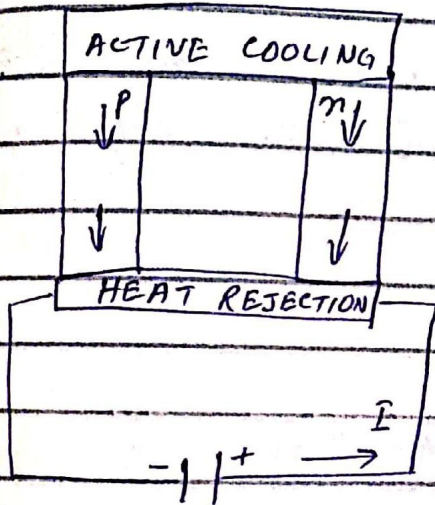 ACTIVE COOLING
P n
HEAT REJECTION
I
- +